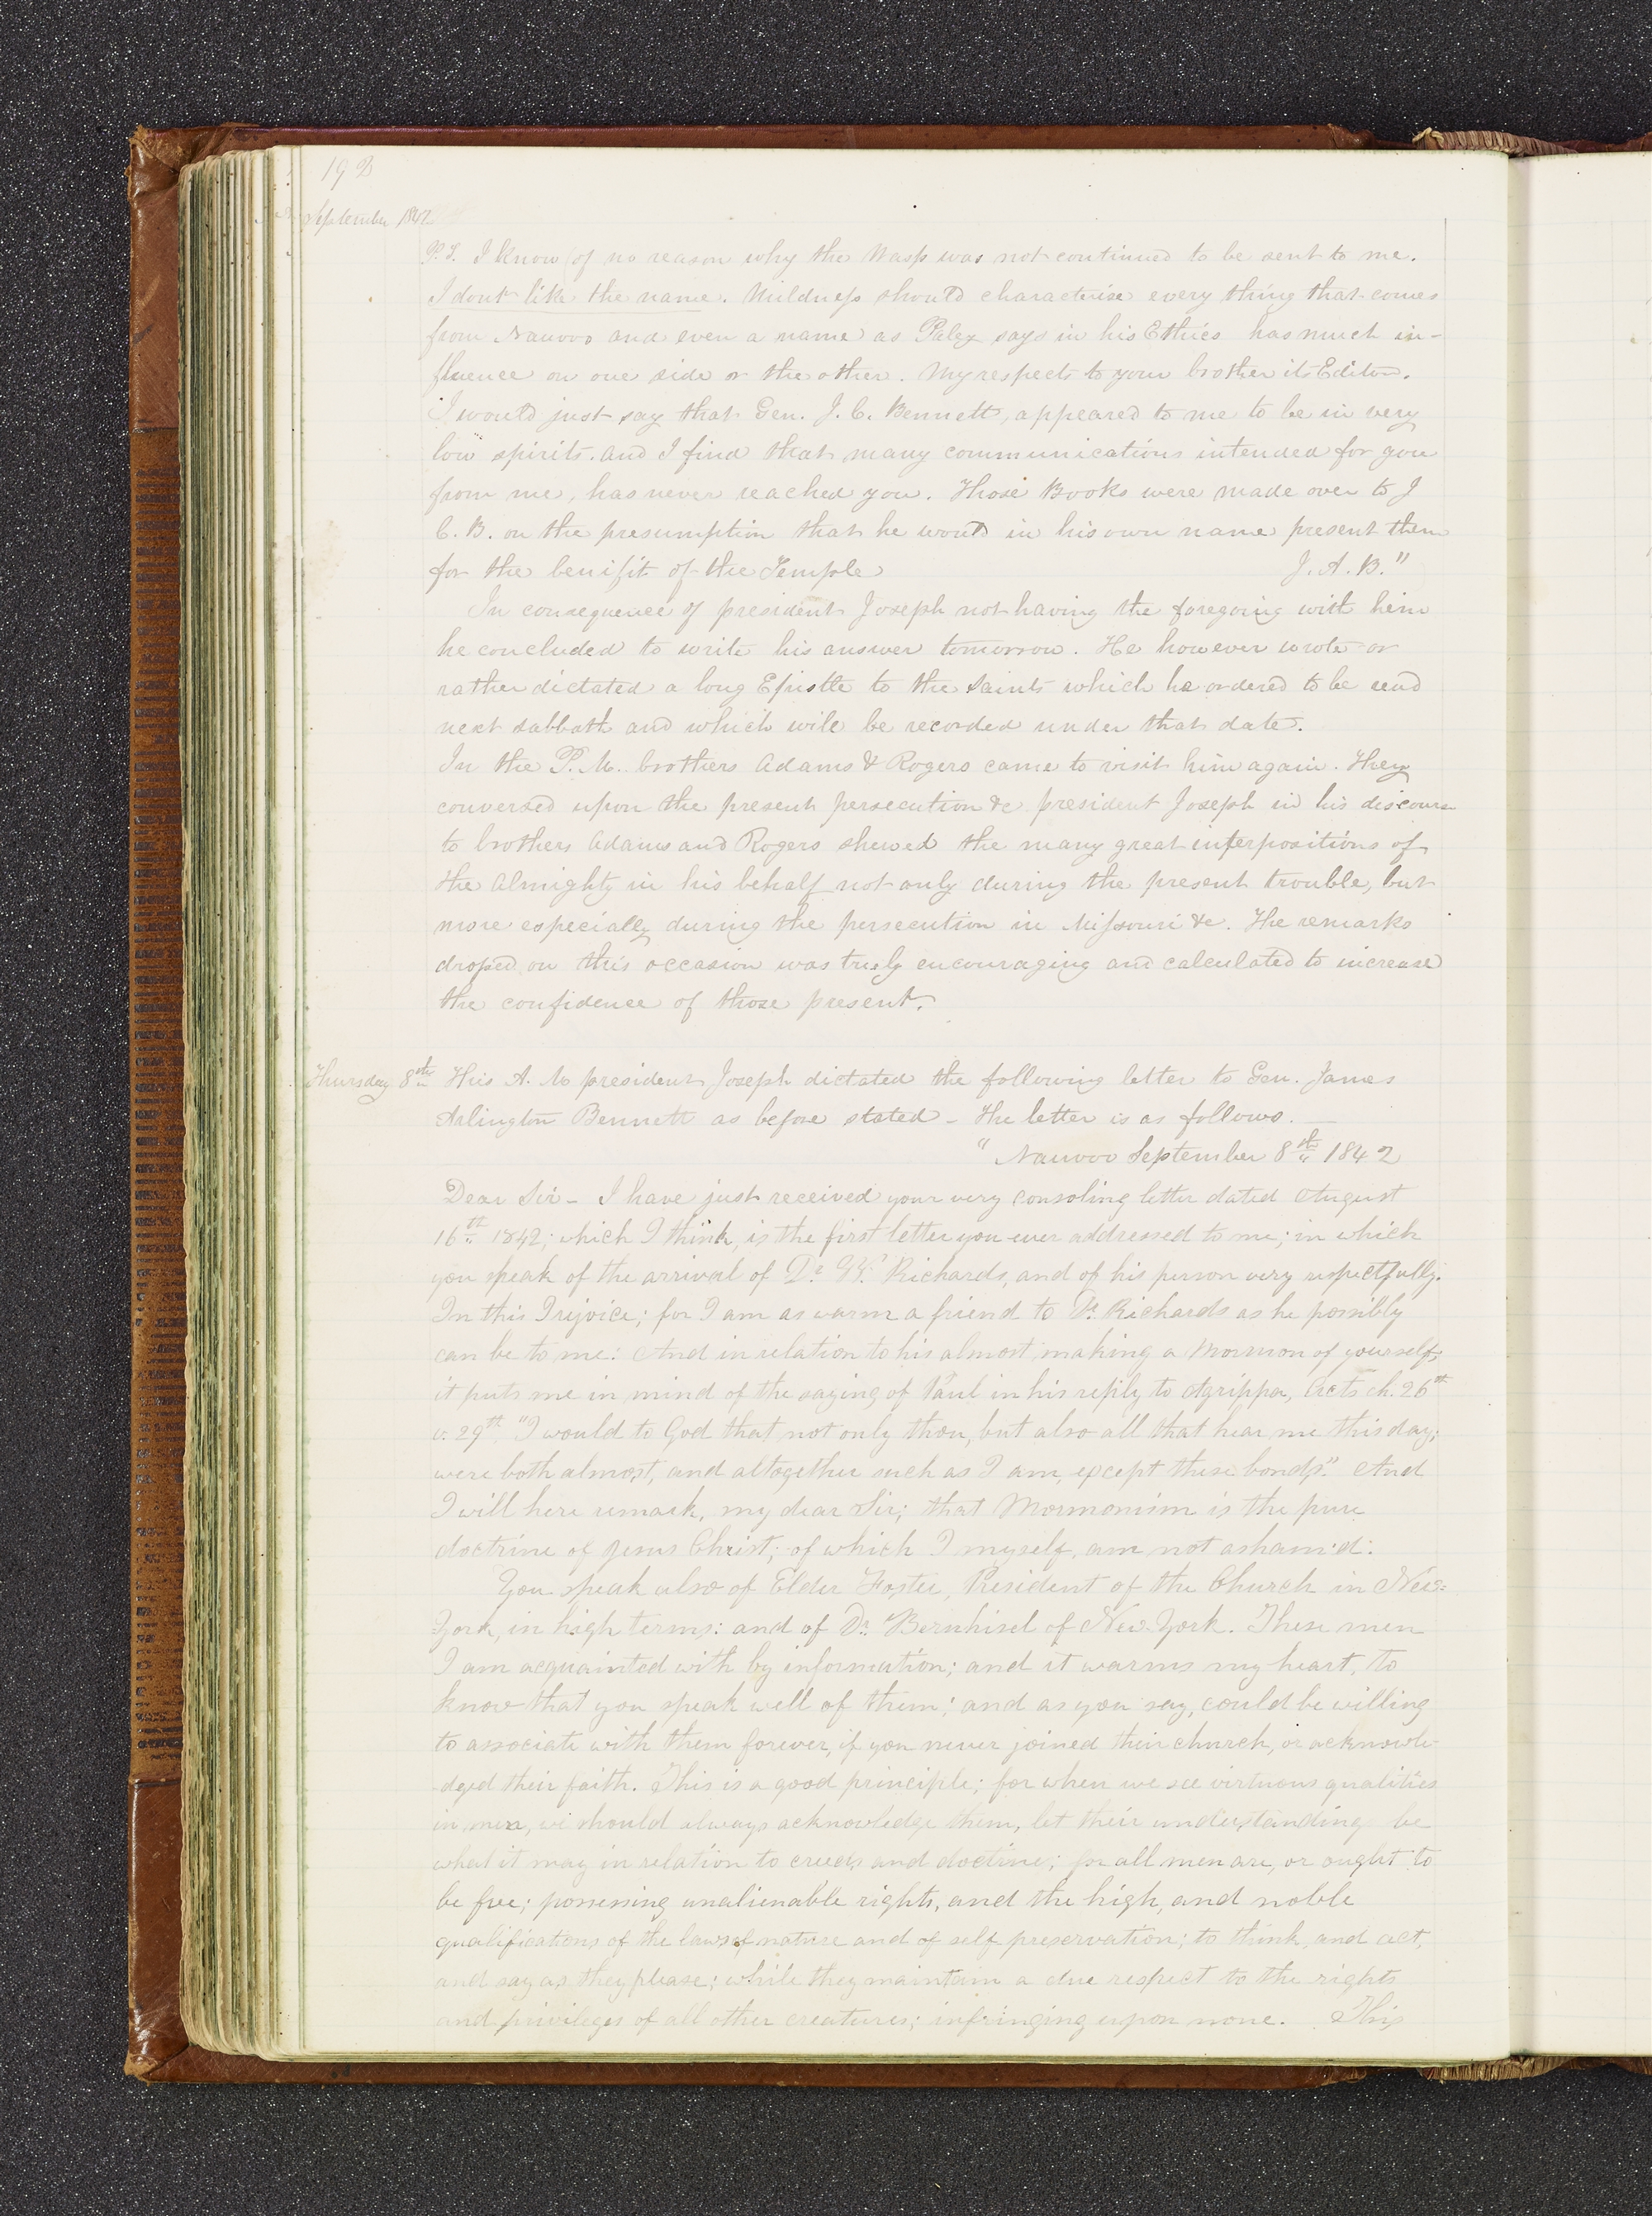 192
September 1842
P.S. I know of no reason why the Wasp was not continued to be sent to me.
I dont like the name. Mildness should characterise every thing that comes
from Nauvoo and even a name as Paley says in his Ethics has much in-
fluence on one side or the other. My respects to your brother its Editor.
I would just say that Gen. J. C. Bennett, appeared to me to be in very
low spirits. and I find that many communications intended for you
from me, has never reached you. Those Books were made over to J
C. B. on the presumption that he would in his own name present them
for the benifit of the Temple J. A. B."
In consequence of president Joseph not having the foregoing with him
he concluded to write his answer tomorrow. He however wrote or
rather dictated a long Epistle to the Saints which he ordered to be read
next sabbath and which will be recorded under that date.
In the P.M. brothers Adams & Rogers came to visit him again. They
conversed upon the present persecution &c president Joseph in his discourse
to brothers Adams and Rogers shewed the many great interpositions of
the Almighty in his behalf not only during the present trouble, but
more especially during the persecution in Missouri &c. The remarks
droped on this occasion was truely encouraging and calculated to increase
the confidence of those present.
Thursday 8th This A. M president Joseph dictated the following letter to Gen. James
Arlington Bennett as before stated – The letter is as follows. –
"Nauvoo September 8th 1842
Dear Sir – I have just received your very consoling letter dated August
16th 1842; which I think, is the first letter you ever addressed to me; in which
you speak of the arrival of Dr W. Richards, and of his person very respectfully.
In this I rejoice; for I am as warm a friend to Dr. Richards as he possibly
can be to me: And in relation to his almost making a Mormon of yourself,
it puts me in mind of the saying of Paul in his reply to Agrippa, Acts ch. 26th
v. 29th "I would to God that not only thou, but also all that hear me this day;
were both almost, and altogether such as I am, except these bonds." And
I will here remark, my dear Sir; that Mormonism is the pure
doctrine of Jesus Christ; of which I myself, am not asham'd.
You speak also of Elder Foster, President of the Church in New=
York, in high terms: and of Dr. Bernhisel of New York. These men
I am acquainted with by information; and it warms my heart, to
know that you speak well of them; and as you say, could be willing
to associate with them forever, if you never joined their church, or acknowle-
-dged their faith. This is a good principle; for when we see virtuous qualities
in men, we should always acknowledge them, let their understanding be
what it may in relation to creeds and doctrine; for all men are, or ought to
be free; possessing unalienable rights, and the high, and noble
qualifications of the laws of nature and of self preservation; to think, and act,
and say as they please; while they maintain a due respect to the rights
and privileges of all other creatures; infringing upon none. This